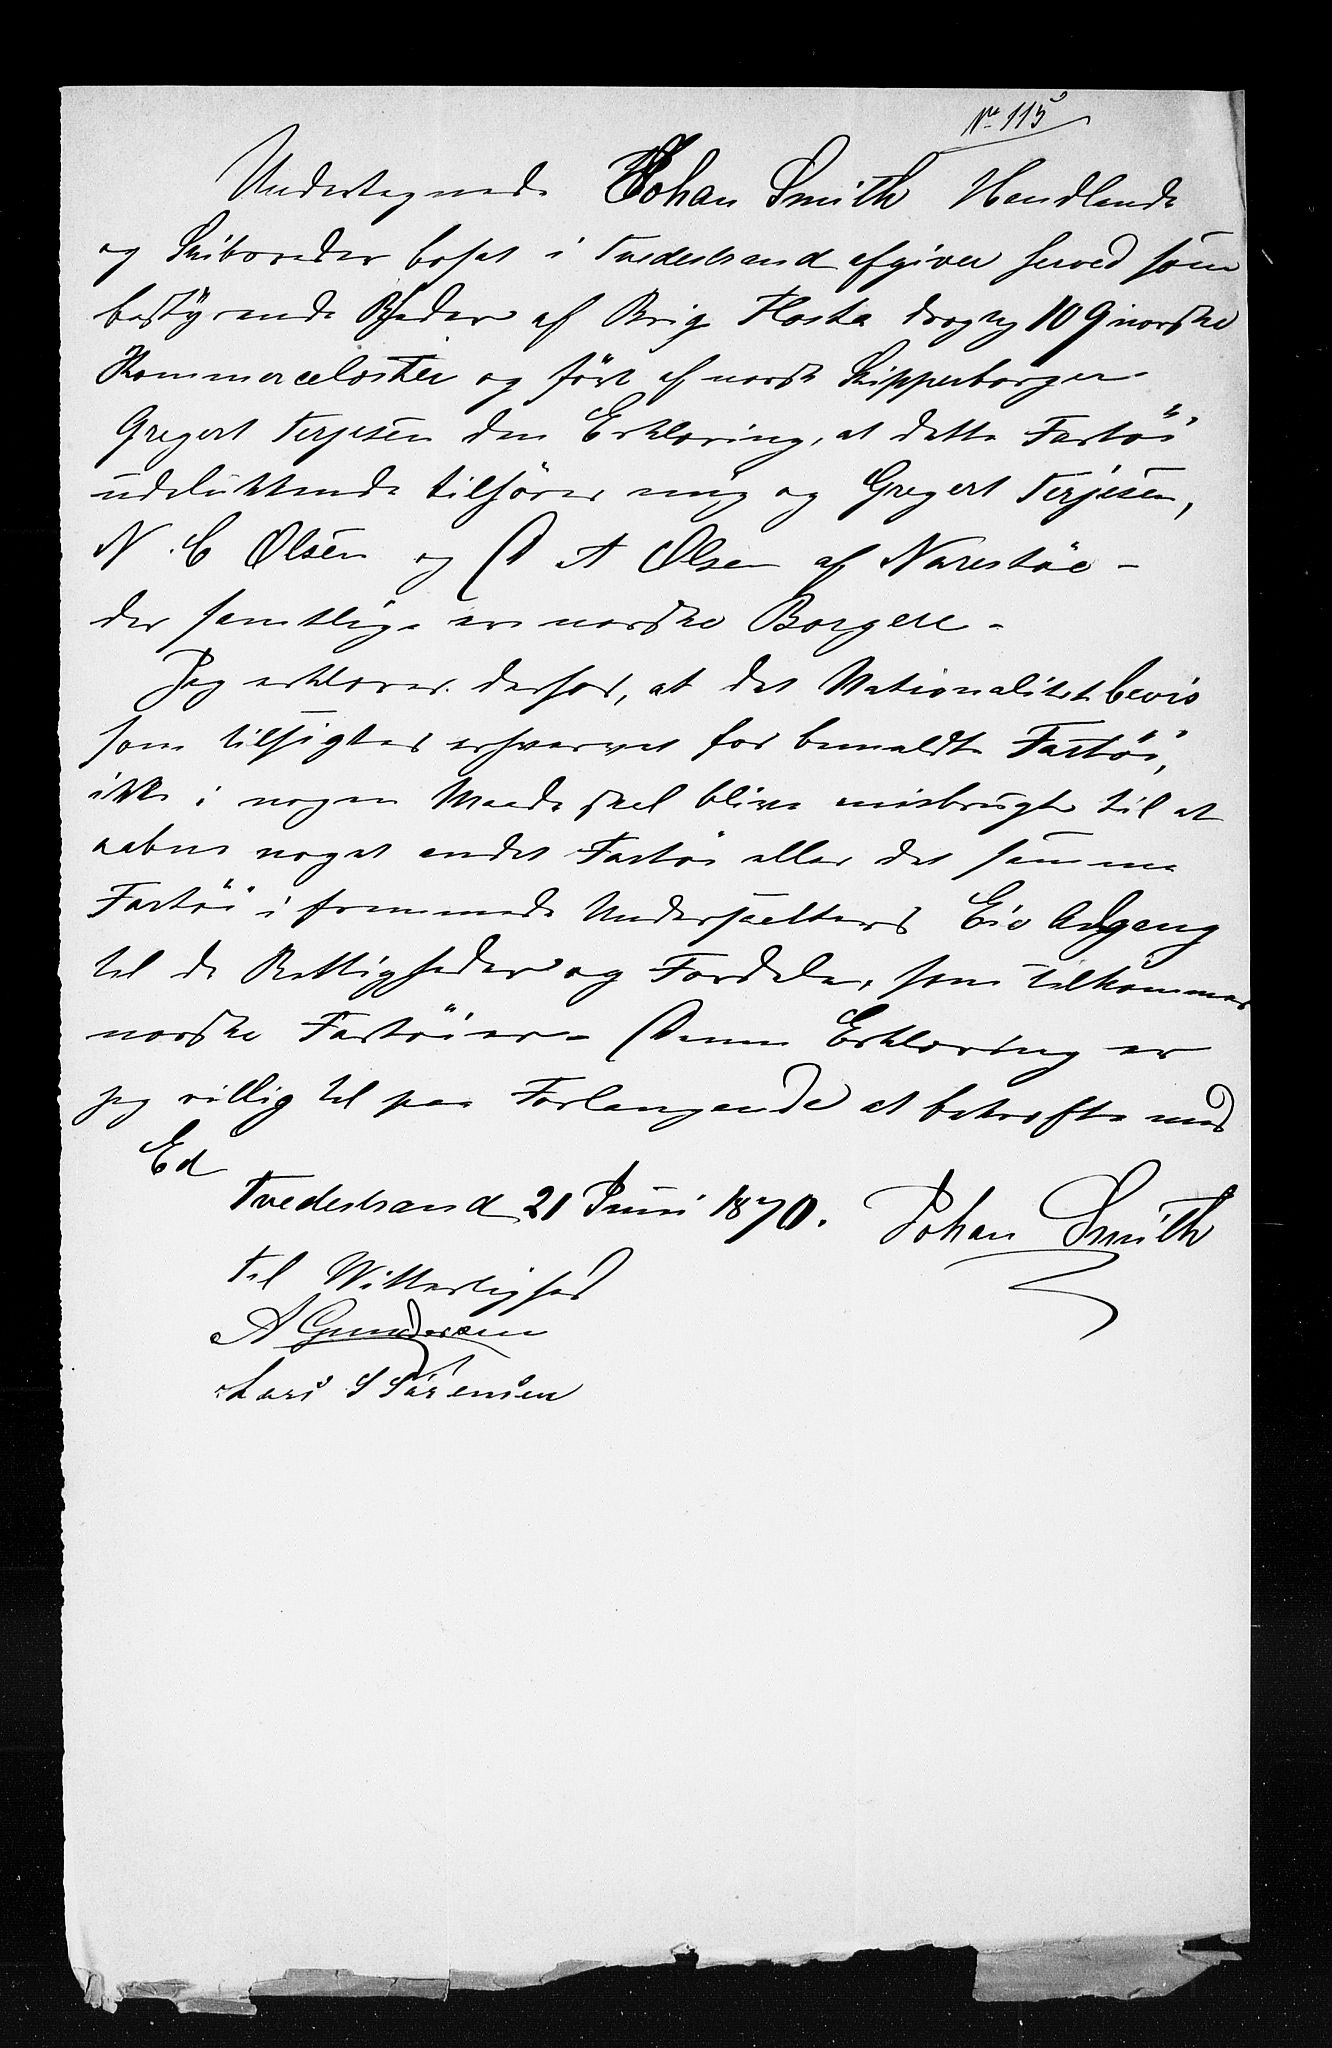 No 115
Undertegnede Johan Smith Handlende
og Skibsreder bosat i Tvedestrand afgiver herved som
bestyrende Rheder af Brig Hosta drægtig 109 norske
Kommercelæster og ført af norsk Skipperborger
Gregert Terjesen den Erklæring, at dette Fartöi
udelukkende tilhører mig og Gregert Terjesen,
N. C Olsen og D A Olsen af Narestöe -
der samtlige ere norske Borgere -
Jeg erklærer derfor, at det Nationalitetsbevis
som tilsigtes erhvervet for bemældte Fartöi,
ikke i nogen Maade skal blive misbrugt til at
aabne noget andet Fartöi eller det samme
Fartöi i fremmede Undersaatters Eie Adgang
til de Rettigheder og Fordele, som tilkommer
norske Fartöier - Denne Erklæring er
jeg villig til paa Forlangende at bekræfte med
Ed
Tvedestrand 21 Juni 1870. Johan Smith
Til Witterlighed
A Gundersen
Lars S Sörensen